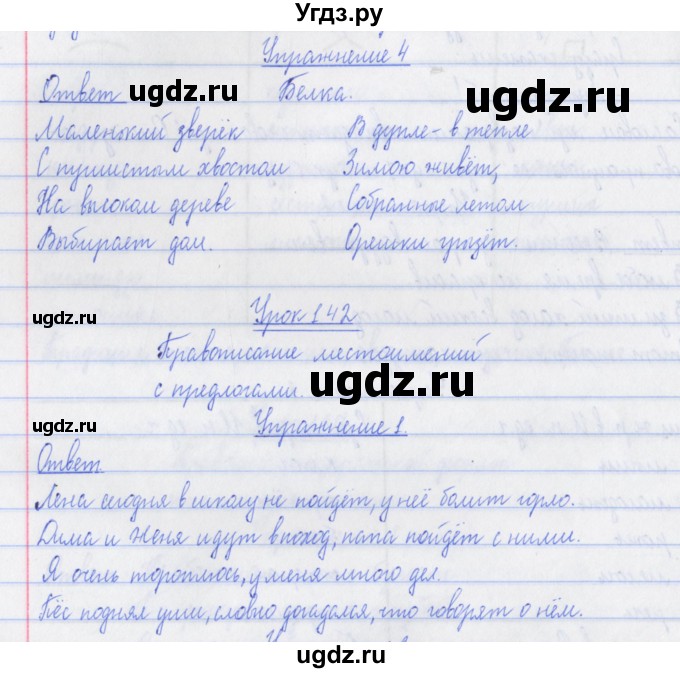 Угдз.ру
Упражнение 4
Ответ Белка.
ugdz.ru ugdz.ru
Маленький зверёк
С пушистым хвостом
На высоком дереве
Выбирает дом.
В дупле - в тепле
Зимою живёт,
Собранные летом
Орешки грызёт.
ugdz.ru
Урок 142
Правописание местоимений
с предлогами.
ugdz.ru
Упражнение 1.
ugdz.ru
Ответ.
Лена сегодня в школу не пойдёт, у неё болит горло.
Дима и Женя идут в поход, папа пойдёт с ними.
Я очень тороплюсь, у меня много дел.
Пёс поднял уши, словно догадался, что говорят о нём.
ugdz.ru